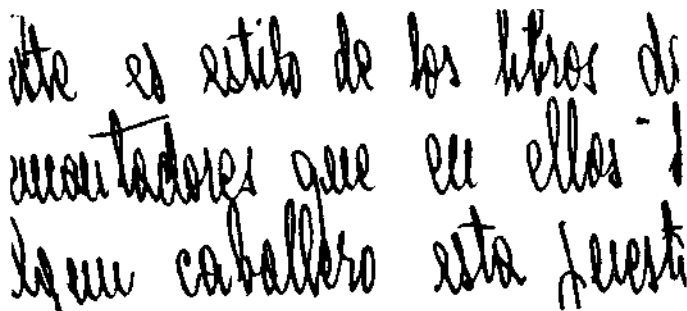 este es estilo de los libros de
encantadores que en ellos
algun caballero esta puesto